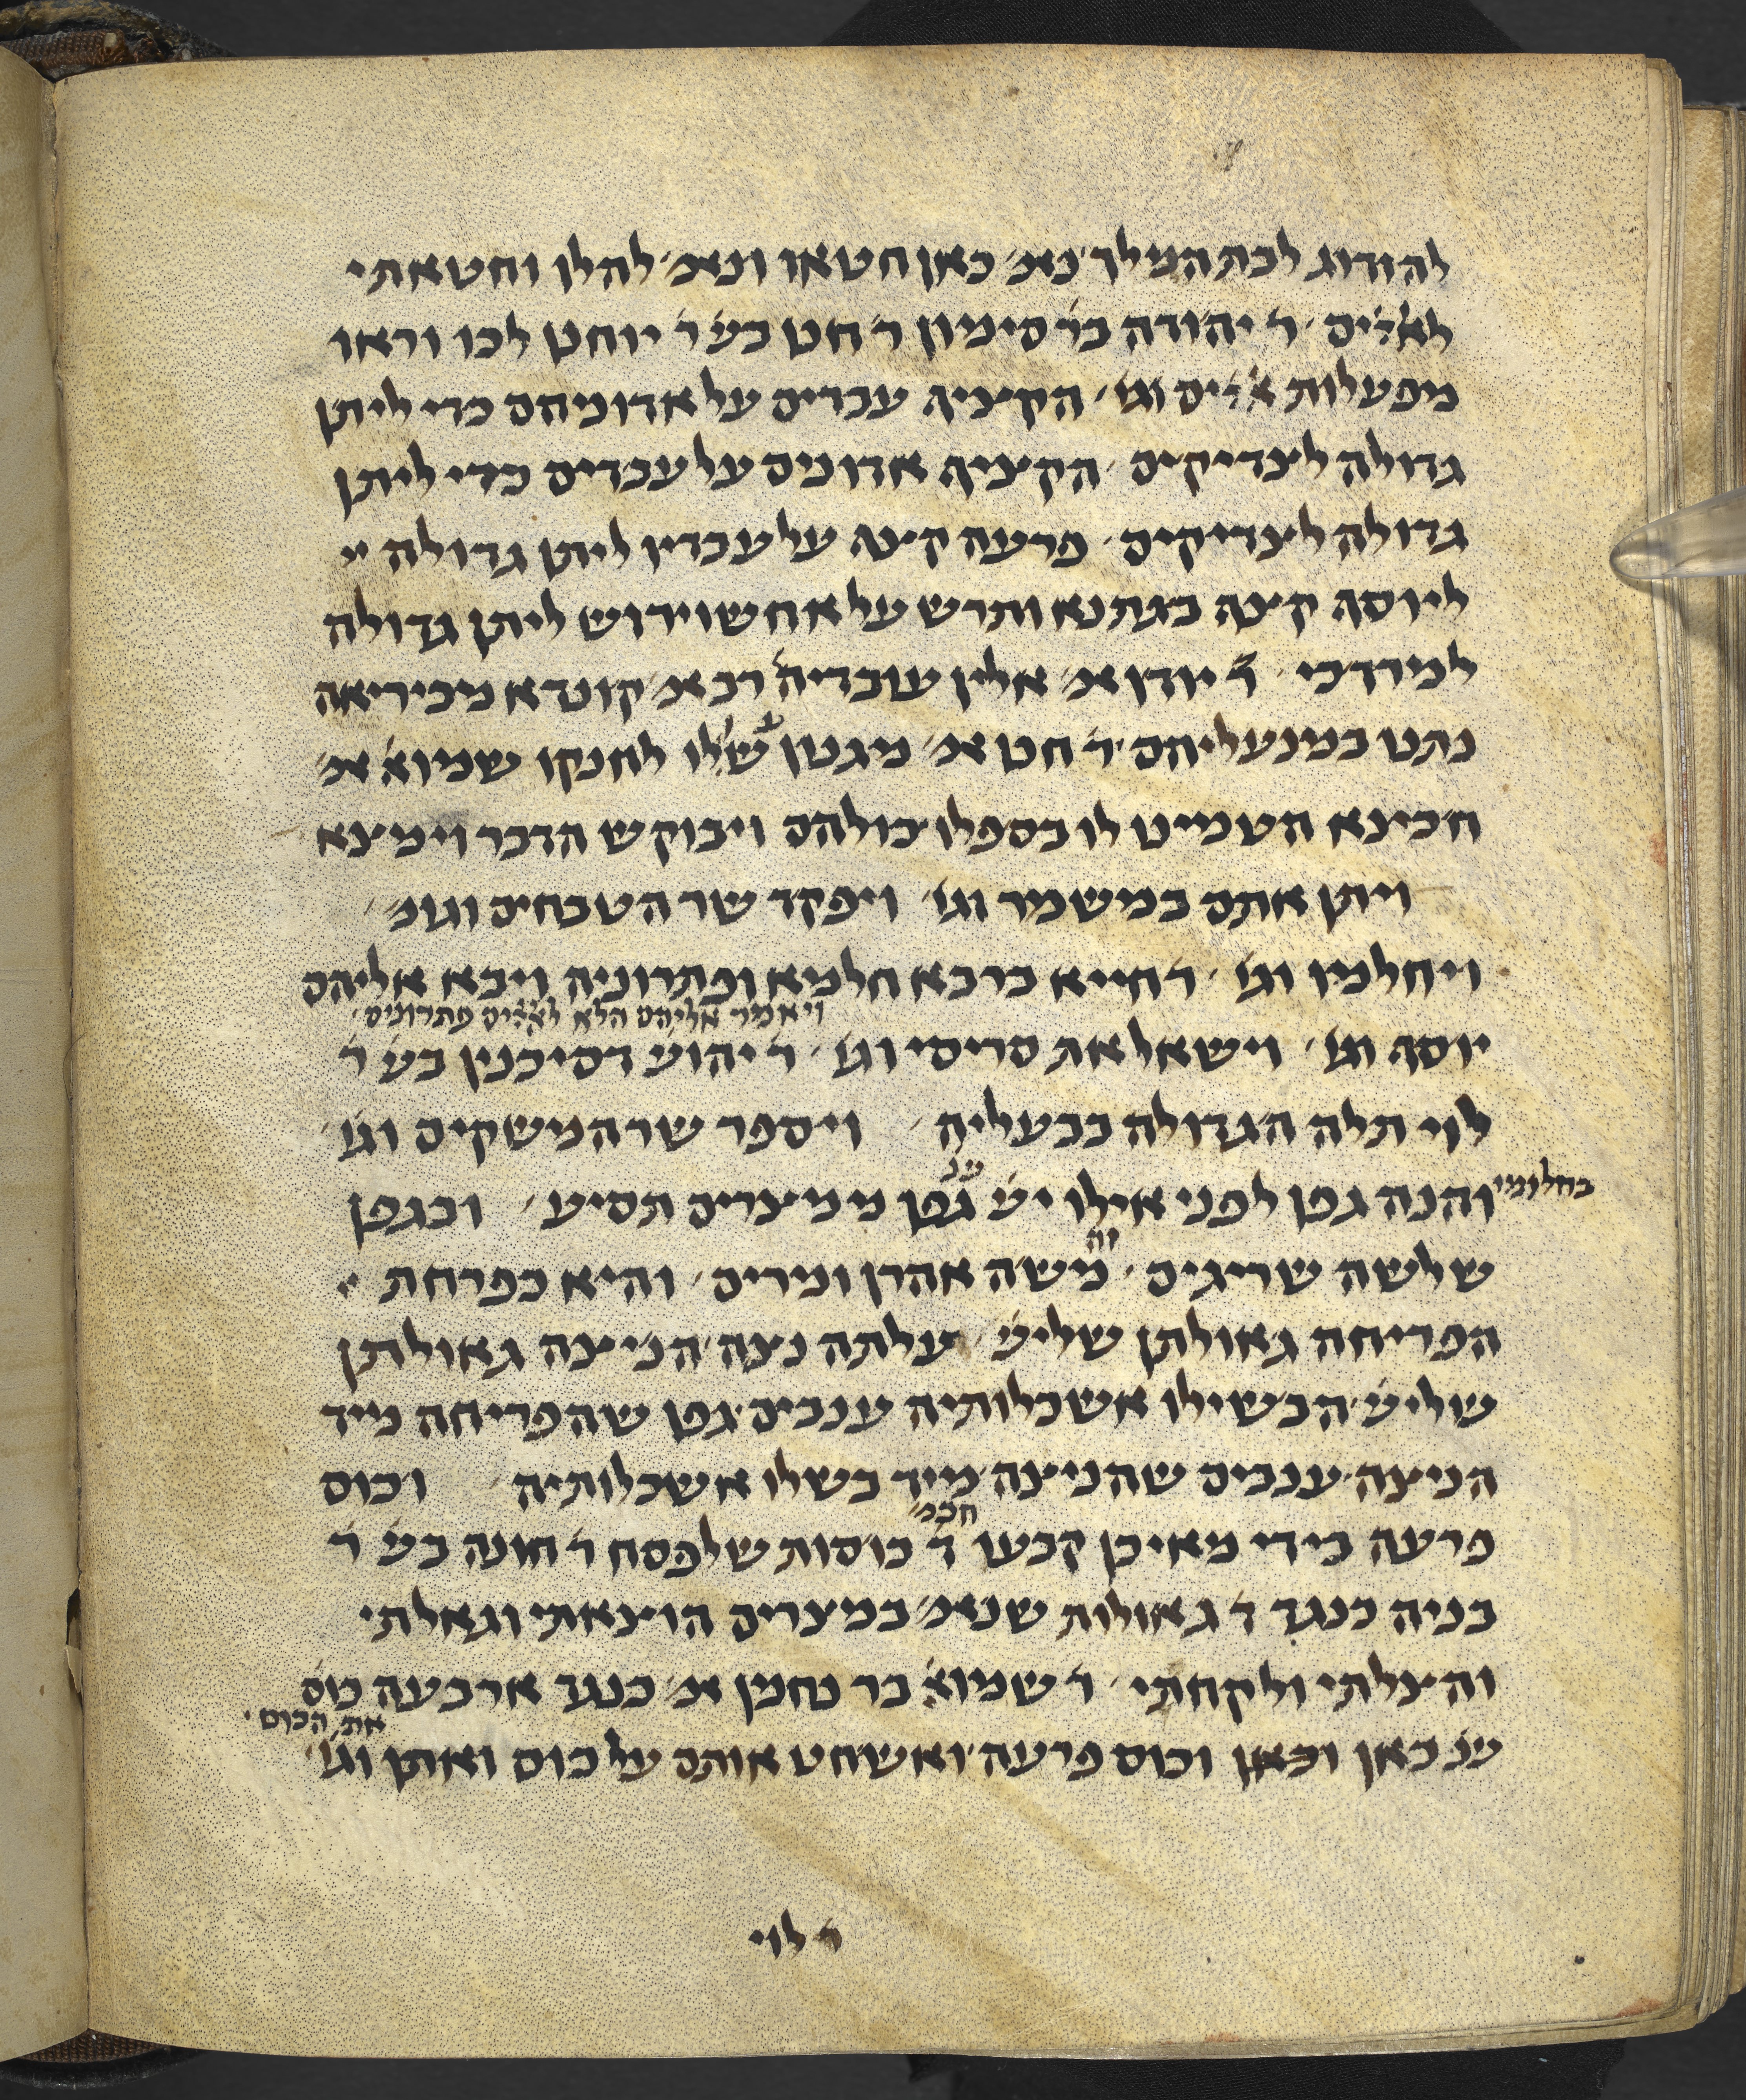 להזדווג לבת המלך נאמ' כאן חטאו ונאמ' להלן וחטאתי
לאלהים ר' יהודה בר' סימון ר' חנן בש' ר' יוחנן לכו וראו
מפעלות אלהים וגו' הקציף עבדים על אדוניהם כדי ליתן
גדולה לצדיקים הקציף אדונים על עבדים כדי ליתן
גדולה לצדיקים פרעה קצף על עבדיו ליתן גדולה
ליוסף קצף בגתנא ותרש על אחשוירוש ליתן גדולה
למרדכי ר' יודן אמ' אלין עובדיה רב אמ' קונדא מכיריאה
נתנו במנעליהם ר' חנן אמ' מגנון עשו לו לחנקו שמוא' אמ'
חכינא הטמינו לו בספלו כולהם ויבוקש הדבר וימצא
ויתן אתם במשמר וגו' ויפקד שר הטבחים וגומ'
ויחלמו וגו' ר' חייא ברבא חלמא ופתרוניה ויבא אליהם
יוסף וגו' וישאל את סריסי וגו' ויאמר אליהם הלא לאלהים פתרונים ר' יהוש' דסיכנין בש' ר'
לוי תלה הגדולה בבעליה ויספר שר המשקים וגו'
בחלומי והנה גפן לפני אילו יש' שנ' גפן ממצרים תסיע ובגפן
שלשה שריגים זה משה אהרן ומרים והיא כפרחת
הפריחה גאולתן שליש' עלתה נצה הניצה גאולתן
שליש' הבשילו אשכלותיה ענבים גפן שהפריחה מיד
הניצה ענבים שהניצה מיד בשלו אשכלותיה וכוס
פרעה בידי מאיכן קבעו חכמ' ד' כוסות שלפסח ר' חונה בש' ר'
בניה כנגד ד' גאולות שנאמ' במצרים הוצאתי וגאלתי
והצלתי ולקחתי ר' שמוא' בר נחמן אמ' כנגד ארבעה כוס'
שנ' כאן וכאן וכוס פרעה ואשחט אותם על כוס ואתן את הכוס וגו'
ר' לוי